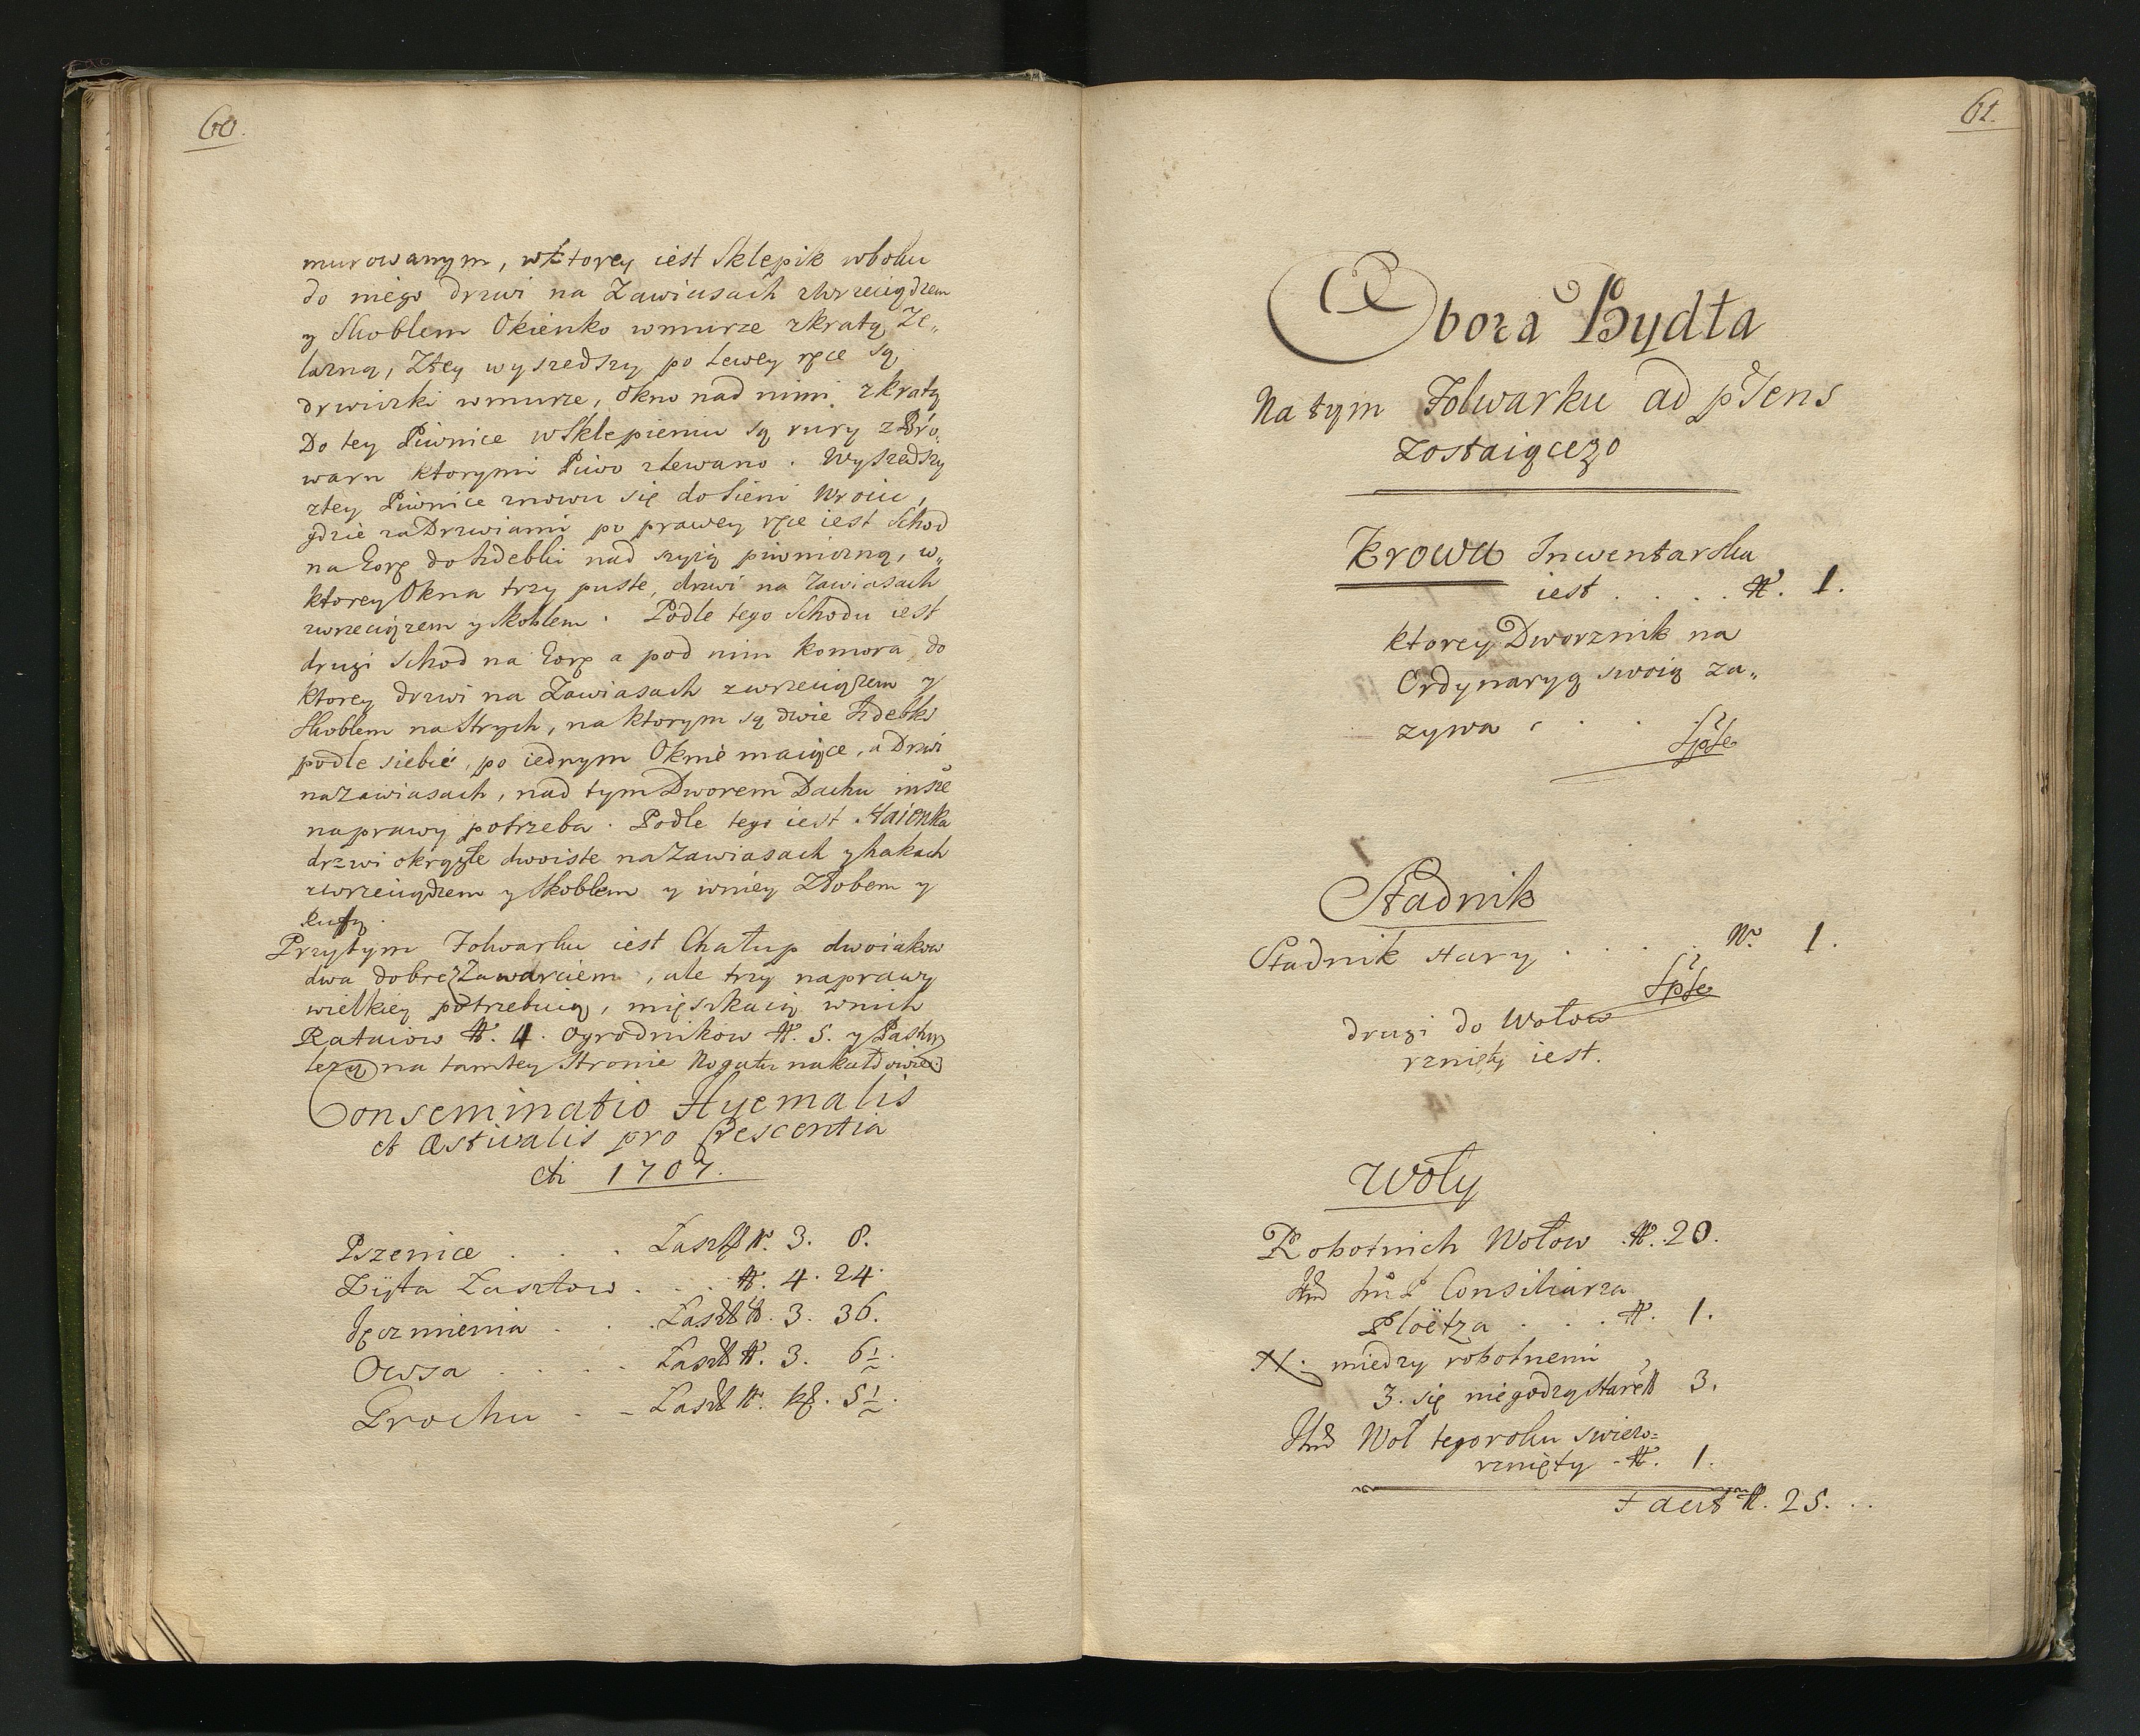 60.
murowanym, wktorey iest Sklepik wboku
do niego drzwi na Zawiasach zWrzeciądzem
y Skoblem Okienko wmurze zkratą Że„
lazną, Ztey wyszedszy po Lewey ręce są
drzwiczki wmurze, okno nad nimi zkratą
Do tey Piwnice wSklepieniu są rury z Bro„
waru ktorymi Piwo zlewano. Wyszedszy
ztey Piwnice znowu się do Sieni wroiu,
gdzie za Drzwiami po prawey ręce iest Schod
na Gorę do Izdebki nad szyią piwniczną, w„
ktorey Okna trzy puste, drzwi na Zawiasach
zwrzeciązem y Skoblem. Podle tego Schodu iest
drugi Schod na Gorę a pod nim Komora, do
ktorey drzwi na Zawiasach zwrzeciązem y
Skoblem na Strych, na ktorym są dwie Izdebki
podle siebie, po iednym Oknie maiące, a Drzwi
na Zawiasach, nad tym Dworem Dachu insze
naprawy potrzeba. Podle tego iest Staienka
drzwi okrągłe dwoiste na Zawiasach y hakach
zwrzeciądzem y Skoblem y wniey Złobem y
Przytym Folwarku iest Chałup dwoiakow
dwa dobre z Zawarciem, ale trzy naprawy
wielkiey potrzebuią, mięszkaią wnich
Rataiow N. 4. Ogrodnikow N. 5. y Pastuz
tezą na tamtey Stronie Nogatu nakałdowie
Conseminatio Hyemalis
et Æstivalis pro Crescentia
Ai 1707.
Pszenice . . . Laszt N. 3. 8.
Żyta Lasztow . . . N. 4. 24.
Ięczmienia . . . Laszt N. 3. 36.
Owsa . . . . Laszt N. 3. 6½.
Grochu . - Laszt N. kß. 5½.
61.
Obora Bydła
Na tym Folwarku ad pſens
zostaiącego
Krowa Inwentarska
iest . . . . N. 1.
ktorey Dworznik na
Ordynaryą swoią za„
zywa . . .
Stadnik
Stadnik stary . . . . N. 1.
drugi do Wołow
rznięty iest.
Woły
Robotnich Wołow N. 20.
Itmd Consiliarza
Ploëtza . . . N. 1.
N. miedzy robotnemi
3. się niegodzą stare N. 3.
Itmd Woł tegoroku swiezo=
rznięty - N. 1.
Facit N. 25. ..